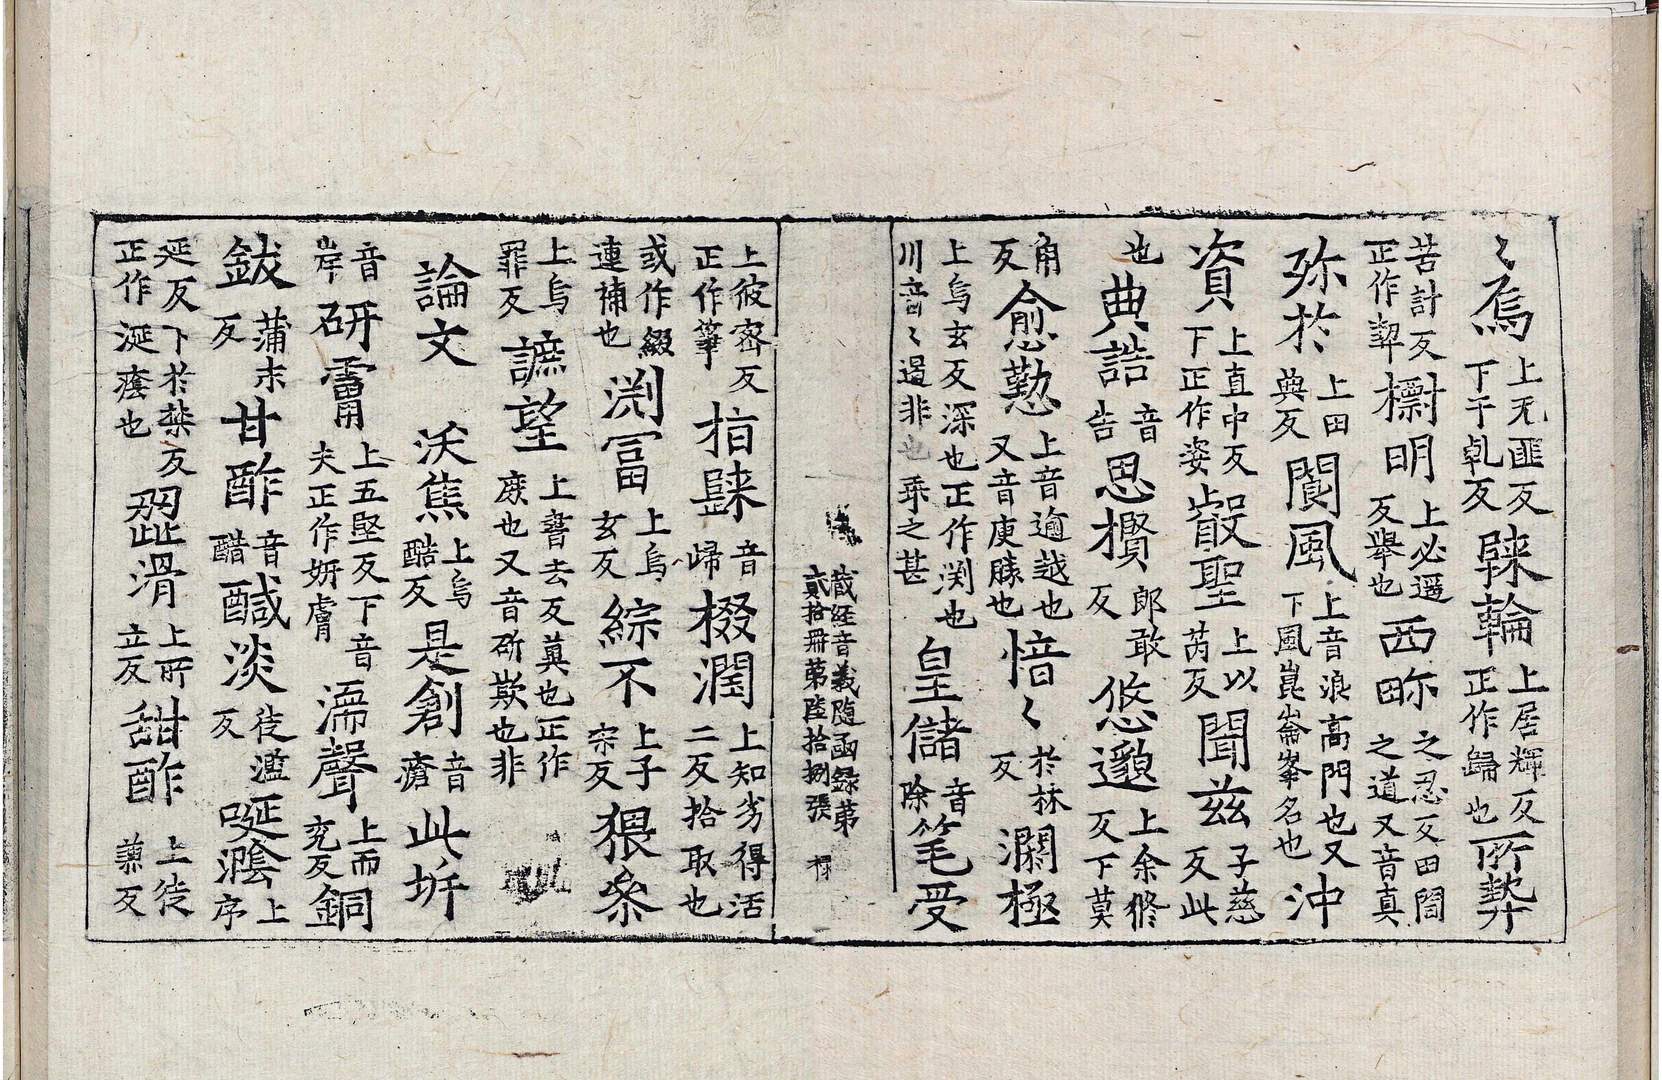 〻焉上无匪反下于乹反䟽輪上居輝反正作歸也所㡭
苦計反正作契㯿明上必遥反舉也西畛之忍反田間之道又音真
弥於上田典反閬風上音浪高門也又下風崑崙峯名也沖
資上直中反下正作姿叡聖上以芮反聞兹子慈反此
也典誥音告思㰖郎敢反悠邈上余修反下莫
角反愈懃上音逾越也又音庾勝也愔〻於林反瀾極
上烏玄反深也正作渊也川音〻過非也乖之甚皇儲音除笔受
藏経音義随函録第貳拾册第陸拾捌張
上彼密反正作筆栢䟽音歸掇潤上知劣得活二反拾取也
或作綴連補也渕冨上烏玄反綜不上子宋反猥叅
上烏罪反謶望上書去反冀也正作庶也又音斫欺也非
論文 沃焦上烏酷反是創音瘡此坼
音岸研𩆍上五堅反下音夫正作妍膚濡聲上而兖反銅
鈸蒲末反甘酢音醋醎淡徒濫反唌㵎上序
延反下於禁反正作涎癊也澀滑上所立反甜酢上徒兼反